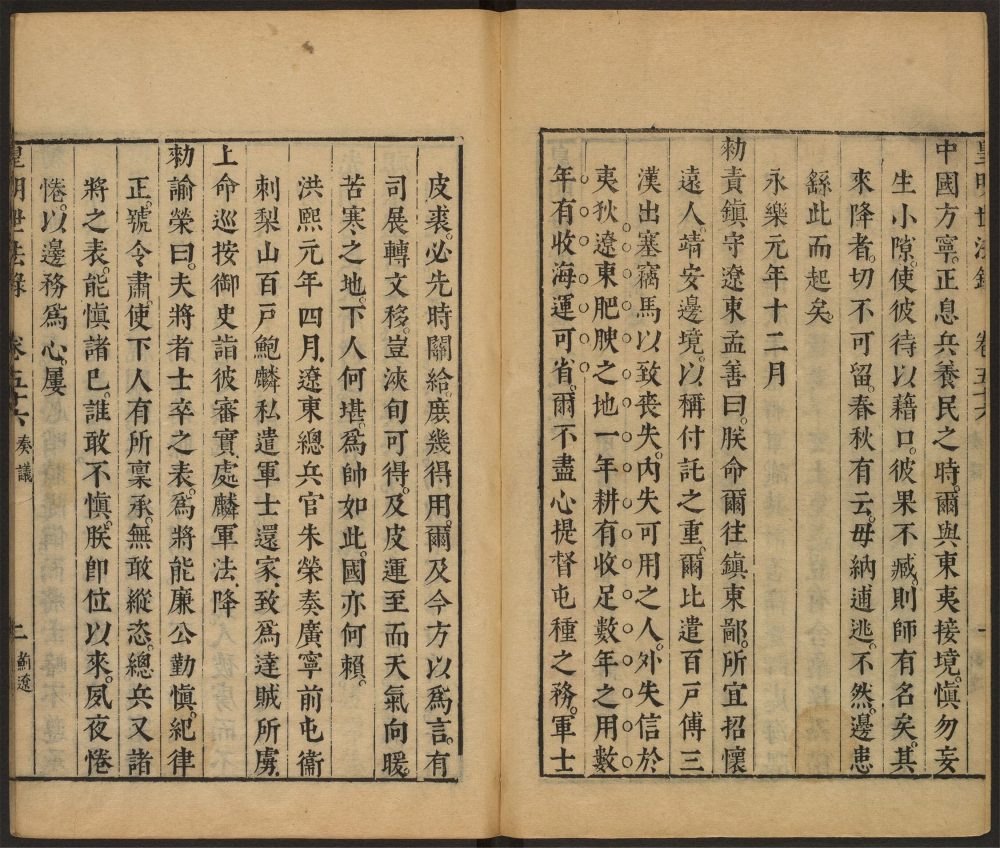 皇明世法錄 卷五十六
中國方寧。正息兵養民之時。爾與東夷接境。愼勿妄
生小隙。使彼待以藉口。彼果不臧。則師有名矣。其
來降者。切不可留。春秋有云。毋納逋逃。不然。邊患
繇此而起矣。
永樂元年十二月
勑責鎮守遼東孟善曰。朕命爾往鎮東鄙。所宜招懷
遠人。靖安邊境。以稱付託之重。爾比遣百戸傅三
漢出塞竊馬以致丧失。内失可用之人。外失信於
夷狄。遼東肥腴之地一年耕有收足數年之用數
年有收海運可省。爾不盡心提督屯種之務。軍士
皮裘。必先時關給。庶幾得用。爾及今方以爲言。有
司展轉文移。豈浹旬可得。及皮運至而天氣向暖。
苦寒之地。下人何堪。爲帥如此。國亦何賴。
洪熙元年四月。遼東總兵官朱榮奏廣寧前屯衞
刺梨山百戸鮑麟私遣軍士還家。致爲達賊所虜。
上命巡按御史詣彼審實。處麟軍法。降
勑諭榮曰。夫將者士卒之表。爲將能廉公勤愼。紀律
正。號令肅。使下人有所稟承。無敢縱恣。總兵又諸
將之表。能愼諸已。誰敢不愼。朕卽位以來。夙夜惓
惓。以邊務爲心。屢
皇明世法錄 卷五十六 奏議 二 薊遼